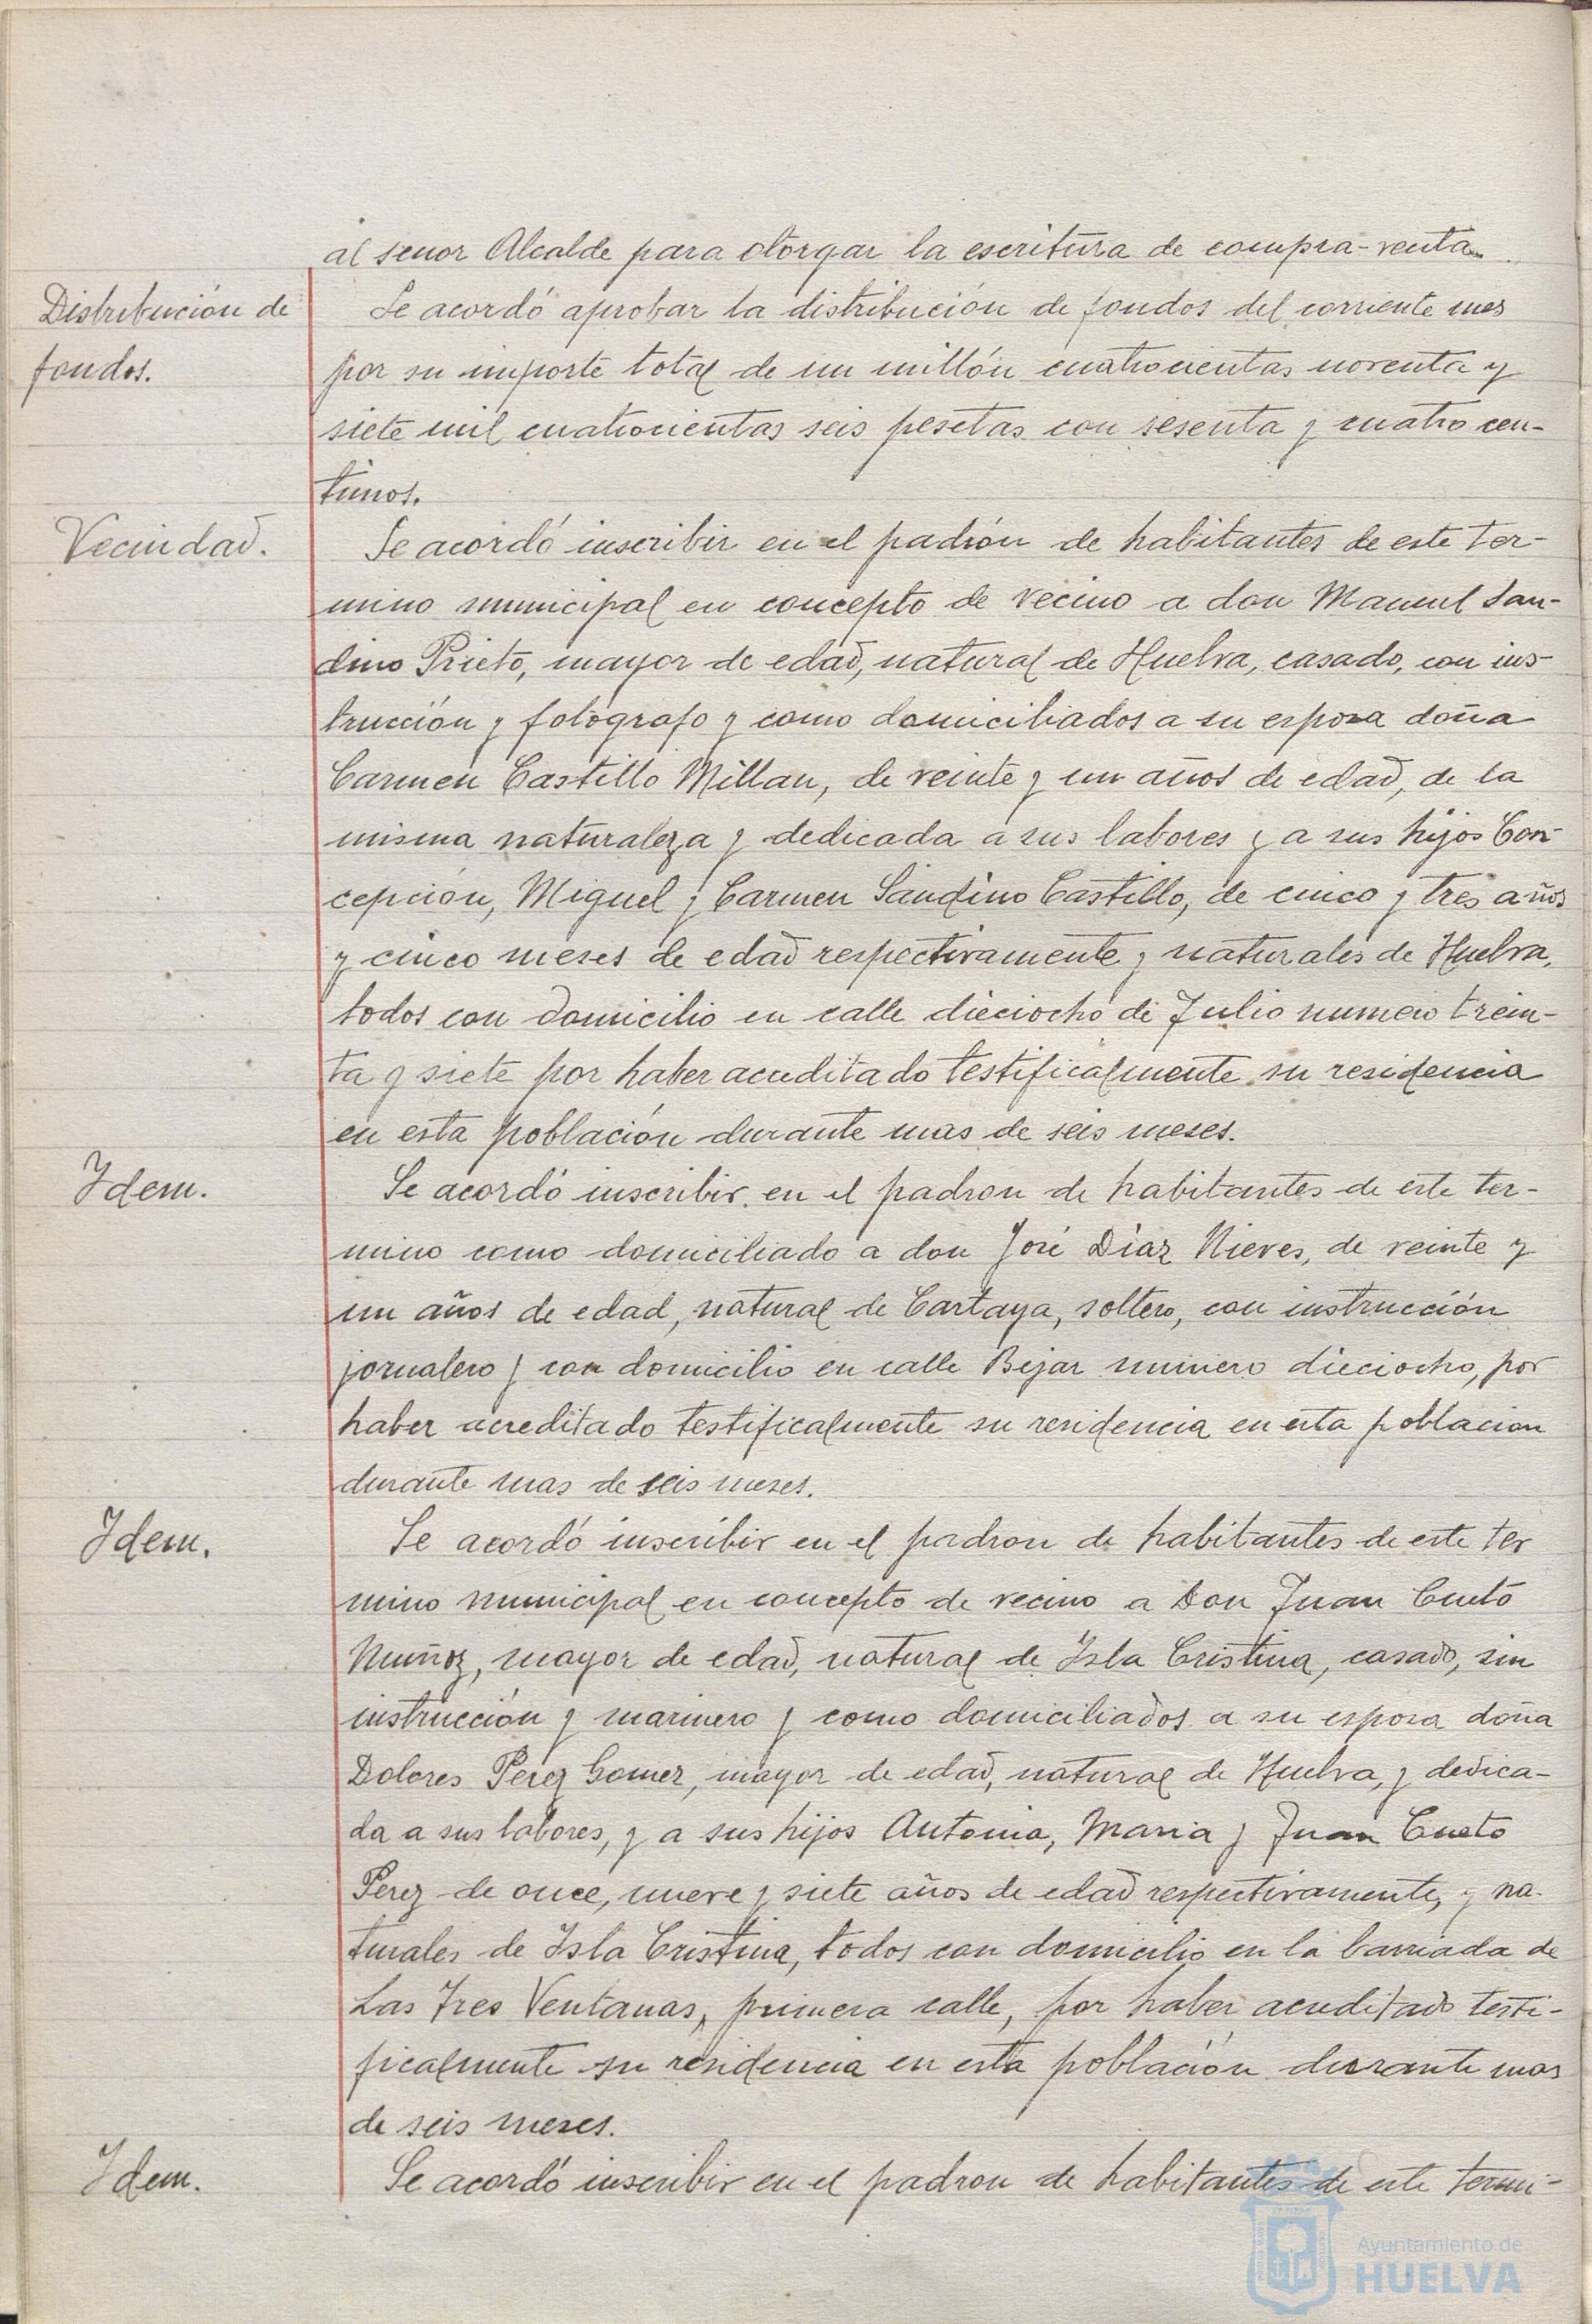 al senor Alcalde para otorgar la escritura de compra-venta.
Distribución de
fondos.
Se acordó aprobar la distribución de fondos del corriente mes
por su importe total de un millón cuatrocientas noventa y
siete mil cuatrocientas seis pesetas con sesenta y cuatro cen-
timos.
Vecindad.
Se acordó inscribir en el padrón de habitantes de este ter-
mino municipal en concepto de vecino a don Manuel San-
dino Prieto, mayor de edad, natural de Huelva, casado, con ins-
trucción y fotógrafo y como domiciliados a su esposa doña
Carmen Castillo Millan, de veinte y un años de edad, de la
misma naturaleza y dedicada a sus labores y a sus hijos Con-
cepción, Miguel y Carmen Sandino Castillo, de cinco y tres años
y cinco meses de edad respectivamente y naturales de Huelva,
todos con domicilio en calle dieciocho de Julio numero trein-
ta y siete por haber acreditado testificalmente su residencia
en esta población durante mas de seis meses.
Idem.
Se acordó inscribir en el padron de habitantes de este ter-
mino como domiciliado a don José Díaz Nieves, de veinte y
un años de edad, natural de Cartaya, soltero, con instrucción
jornalero y con domicilio en calle Bejar numero dieciocho, por
haber acreditado testificalmente su residencia en esta poblacion
durante mas de seis meses.
Idem.
Se acordó inscribir en el padron de habitantes de este ter
mino municipal en concepto de vecino a Don Juan Cueto
Muñoz, mayor de edad, natural de Isla Cristina, casado, sin
instrucción y marinero y como domiciliados a su esposa doña
Dolores Perez Gomez, mayor de edad, natural de Huelva, y dedica-
da a sus labores, y a sus hijos Antonia, Maria y Juan Cueto
Perez de once, nueve y siete años de edad respectivamente, y na-
turales de Isla Cristina, todos con domicilio en la barriada de
Las Tres Ventanas, primera calle, por haber acreditado testi-
ficalmente su residencia en esta población durante mas
de seis meses.
Idem.
Se acordó inscribir en el padron de habitantes de este termi-
Ayuntamiento de
HUELVA